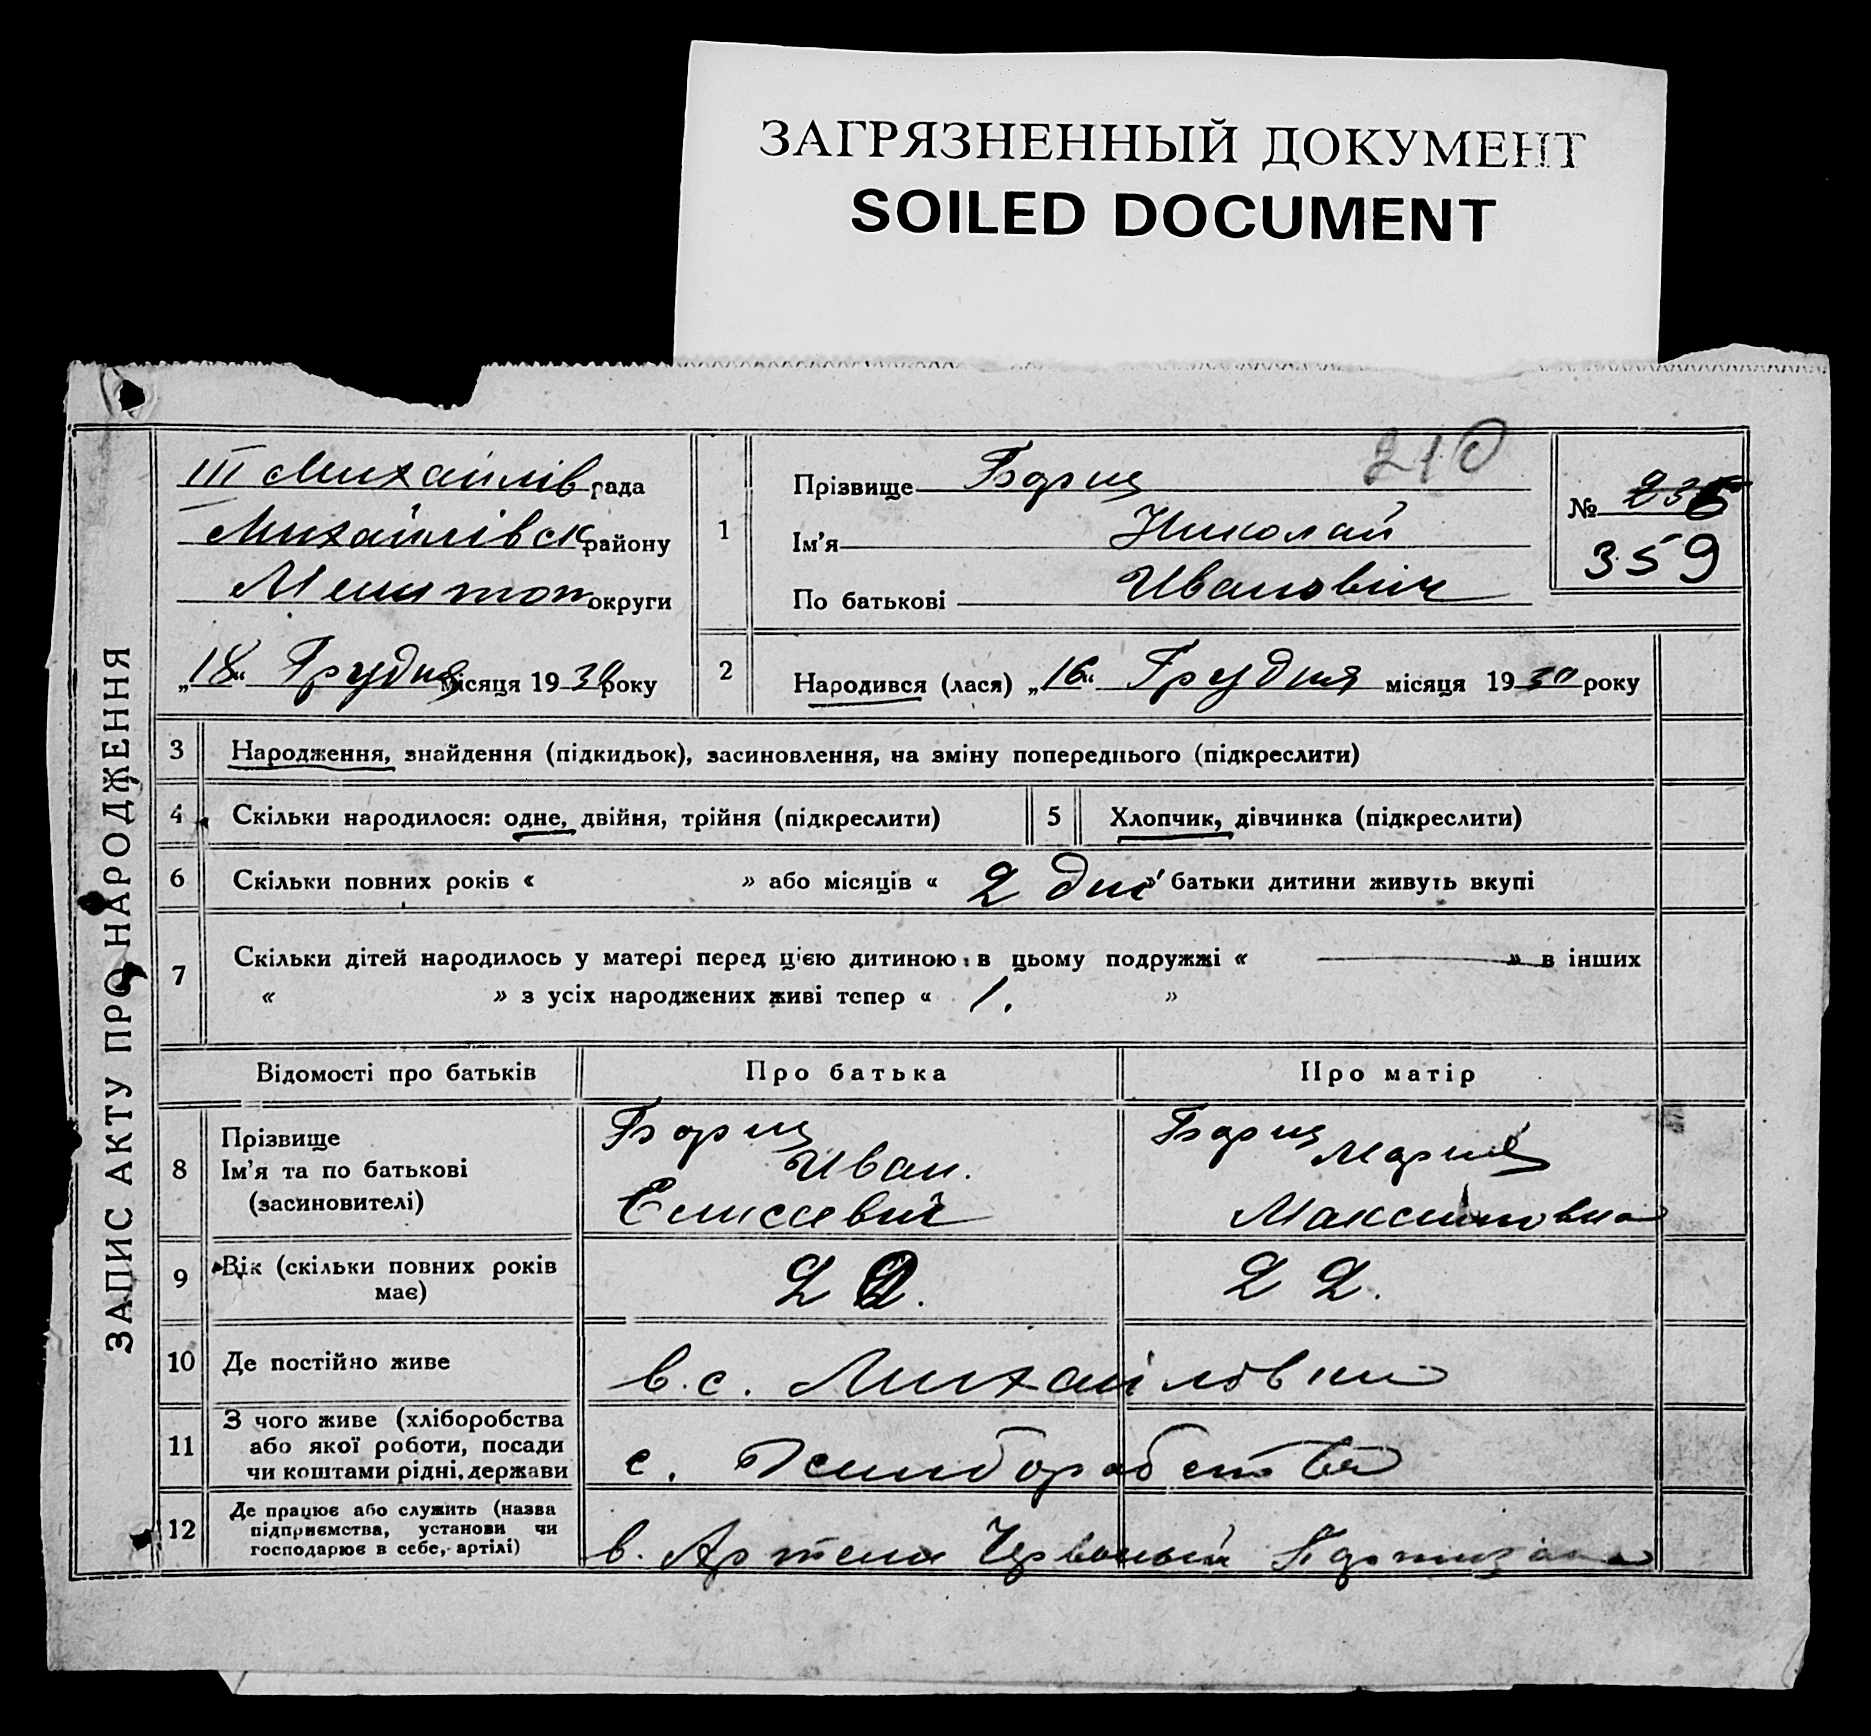 ЗАГРЯЗНЕННЫЙ ДОКУМЕНТ
SOILED DOCUMENT
ЗАПИС АКТУ ПРО НАРОДЖЕННЯ
III Михайлів рада
Михайлівськ району
Мелитоп округи
„18“ Грудня місяця 1930 року
210
1
Прізвище Борщ
Ім'я Николай
По батькові Иванович
№ 235
359
2
Народився (лася) „16“ Грудня місяця 1930 року
3 Народження, знайдення (підкидьок), засиновлення, на зміну попереднього (підкреслити)
4 Скільки народилося: одне, двійня, трійня (підкреслити)
5 Хлопчик, дівчинка (підкреслити)
6 Скільки повних років « » або місяців « 2 дні » батьки дитини живуть вкупі
7 Скільки дітей народилось у матері перед цією дитиною: в цьому подружжі « — » в інших
« » з усіх народжених живі тепер « 1. »
Відомості про батьків Про батька Про матір
8
Прізвище
Ім'я та по батькові
(засиновителі)
Борщ
Иван.
Елисеевич
Борщ
Мария
Максимовна
9
Вік (скільки повних років
має)
22.
22.
10 Де постійно живе
в. с. Михайловки
11
З чого живе (хліборобства
або якої роботи, посади
чи коштами рідні, держави
с. Хлиборобства
12
Де працює або служить (назва
підприємства, установи чи
господарює в себе, артілі)
в. Артели Червоный Партизан